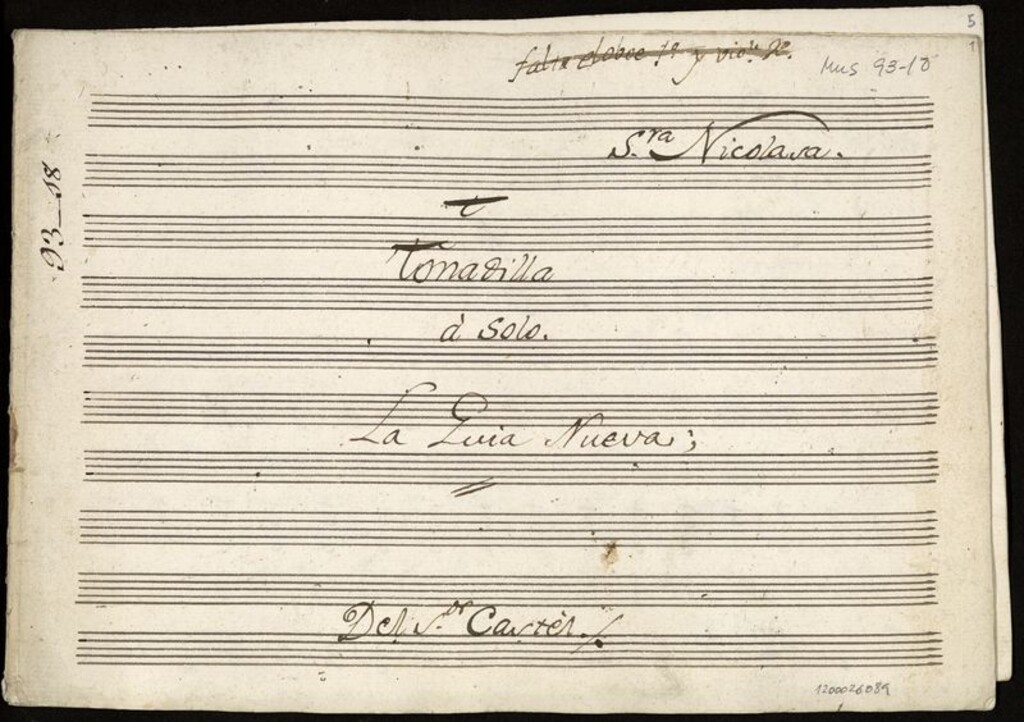 5
1
falta el oboe 1º y vio.n 2º.
Mus 93-18
S.ra Nicolasa.
93-18
t
Tonadilla
à solo.
La Guia Nueva;
Del S.or Castèl.
1200026089